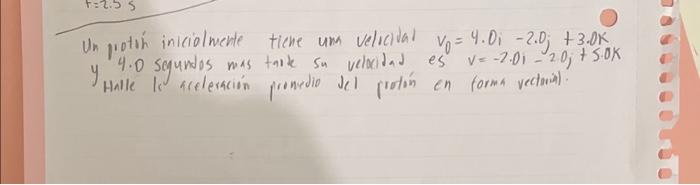 t=2.5 s
Un protón inicialmente tiene una velocidad v₀ = 4.0i - 2.0j + 3.0k
y 4.0 segundos mas tarde su velocidad es v = -2.0i - 2.0j + 5.0k
Halle la aceleración promedio del protón en forma vectorial.